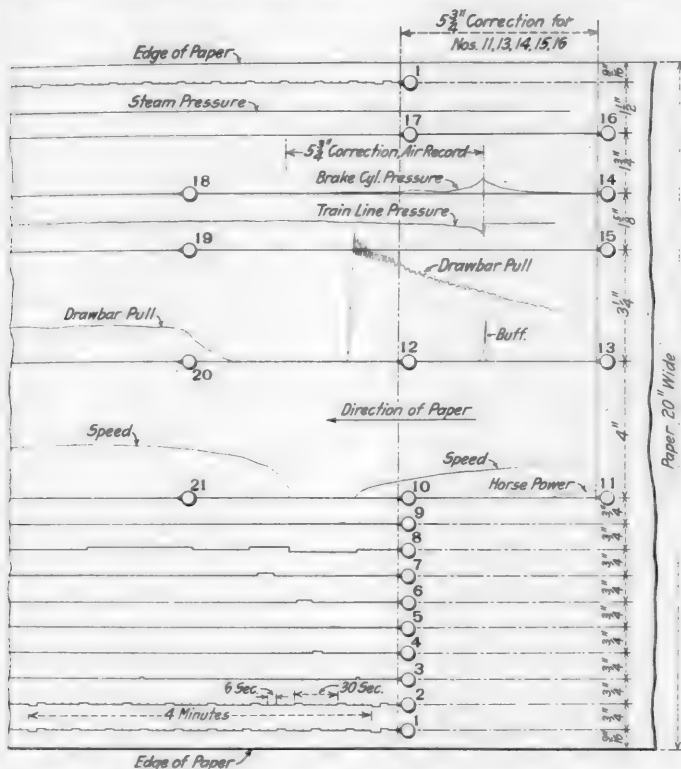 5¾" Correction for
Nos. 11, 13, 14, 15, 16
Edge of Paper
1
9/16"
Steam Pressure
1½"
17
16
5¾" Correction, Air Record
1¾"
Brake Cyl. Pressure
18
14
Train Line Pressure
1⅝"
19
15
Drawbar Pull
3¼"
Drawbar Pull
Buff.
12
13
20
Direction of Paper
Paper 20" Wide
4"
Speed
Speed
Horse Power
21
10
11
9
¾"
8
¾"
7
¾"
6
¾"
5
¾"
4
¾"
3
¾"
6 Sec.
30 Sec.
2
¾"
4 Minutes
¾"
1
9/16"
Edge of Paper